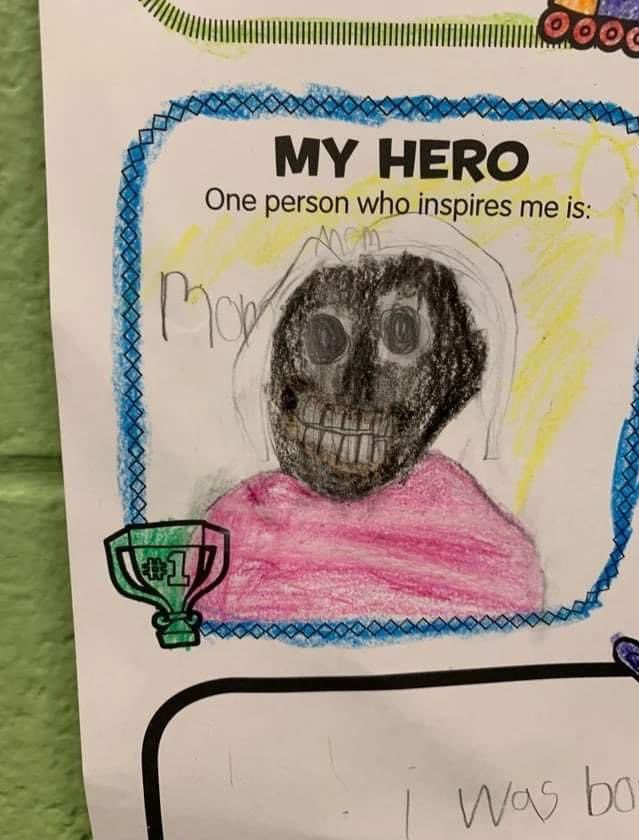 MY HERO
One person who inspires me is:
mom
Mom
#1
i was bo